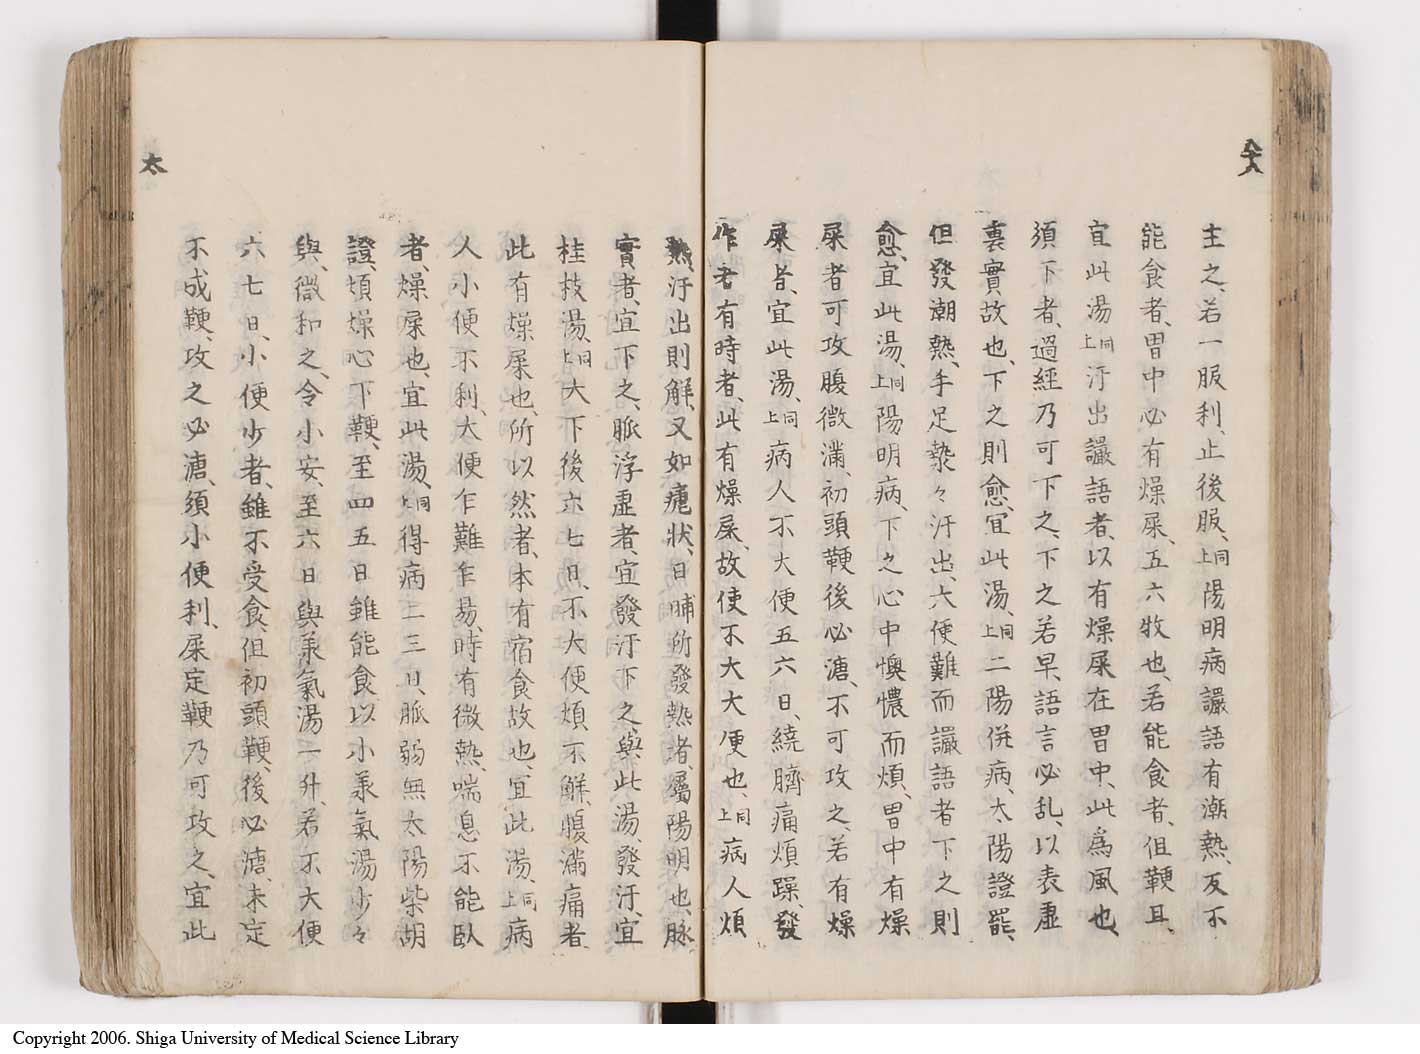 主之、若一服利、止後服、上同陽明病讝語有潮熱、反不
能食者、胃中必有燥屎、五六牧也、若能食者、但鞕耳、
宜此湯上同汗出讝語者、以有燥屎在胃中、此爲風也、
須下者、過經乃可下之、下之若早、語言必乱、以表虚
裏實故也、下之則愈、宜此湯、上同二陽併病、太陽證罷、
但發潮熱、手足漐々汗出、大便難而讝語者下之則
愈、宜此湯、上同陽明病、下之心中懊憹而煩、胃中有燥
屎者可攻腹微滿、初頭鞕後必溏、不可攻之、若有燥
屎者、宜此湯、上同病人不大便五六日、繞臍痛煩躁、發
作 有時者、此有燥屎、故使不大大便也、上同病人煩
熱、汗出則解、又如瘧狀、日晡所發熱者、屬陽明也、脉
實者、宜下之、脈浮虚者、宜發汗、下之、與此湯、發汗、宜
桂枝湯、上同大下後六七日、不大便煩不解、腹滿痛者、
此有燥屎也、所以然者、本有宿食故也、宜此湯、上同病
人小便不利、大便乍難乍易、時有微熱、喘息不能臥
者、燥屎也、宜此湯、上同得病二三日、脈弱無太陽柴胡
證、煩燥心下鞕、至四五日雖能食以小承氣湯少々
與、微和之、令小安、至六日與承氣湯一升、若不大便
六七日、小便少者、雖不受食、但初頭鞕、後必溏、未定
不成鞕、攻之必溏、須小便利、屎定鞕乃可攻之、宜此
太
Copyright 2006. Shiga University of Medical Science Library